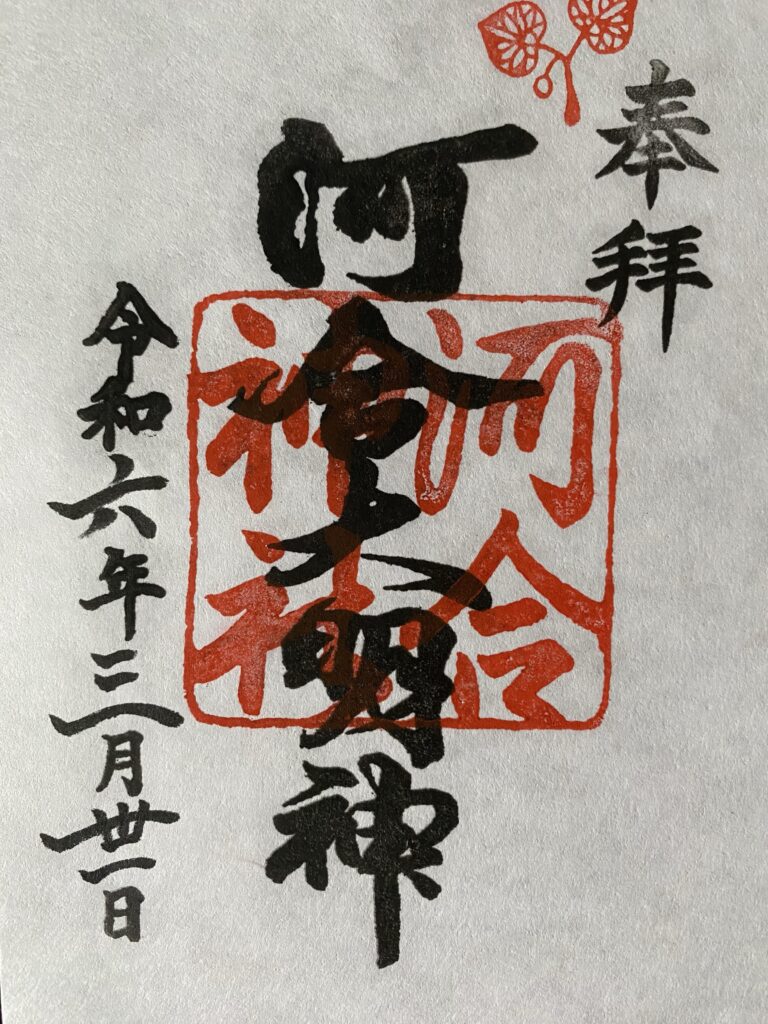 奉拝
河合大明神
河合
神社
令和六年三月卅一日